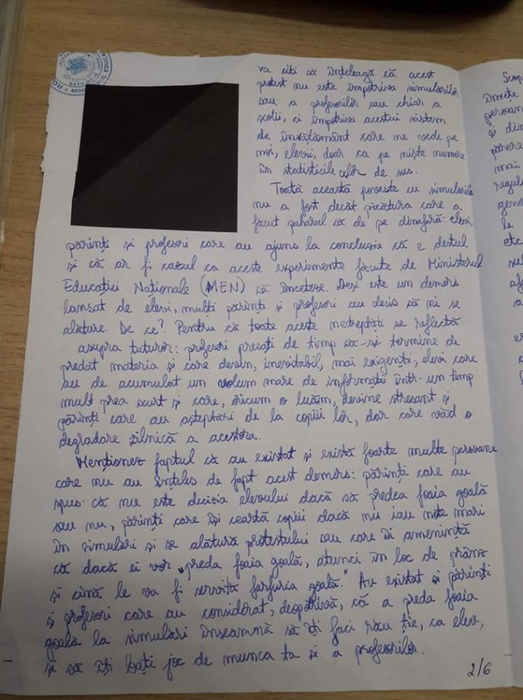 va citi să înțeleagă că acest
protest nu este împotriva simulărilor
sau a profesorilor sau chiar a
școlii, ci împotriva acestui sistem
de învățământ care ne vede pe
noi, elevii, doar ca pe niște numere
în statisticile celor de sus.
Toată această poveste cu simulările
nu a fost decât picătura care a
făcut paharul să dea pe dinafară: elevi,
părinți și profesori care au ajuns la concluzia că e destul
și că ar fi cazul ca aceste experimente făcute de Ministerul
Educației Naționale (MEN) să înceteze. Deși este un demers
lansat de elevi, mulți părinți și profesori au decis să ni se
alăture. De ce? Pentru că toate aceste nedreptăți se reflectă
asupra tuturor: profesori presați de timp să-și termine de
predat materia și care devin, inevitabil, mai exigenți, elevi care
au de acumulat un volum mare de informații într-un timp
mult prea scurt și care, oricum o luăm, devine stresant și
părinți care au așteptări de la copiii lor, dar care văd o
degradare zilnică a acestora.
Menționez faptul că au existat și există foarte multe persoane
care nu au înțeles de fapt acest demers: părinți care au
spus că nu este decizia elevului dacă să predea foaia goală
sau nu, părinți care își ceartă copiii dacă nu iau note mari
în simulări și se alătură protestului sau care îi amenință
că dacă ei vor "preda foaia goală, atunci în loc de prânz
și cină le va fi servită farfuria goală." Au existat și părinți
și profesori care au considerat, deopotrivă, că a preda foaia
goală la simulări înseamnă să îți faci rău ție, ca elev,
și să îți bați joc de munca ta și a profesorilor.
2/6